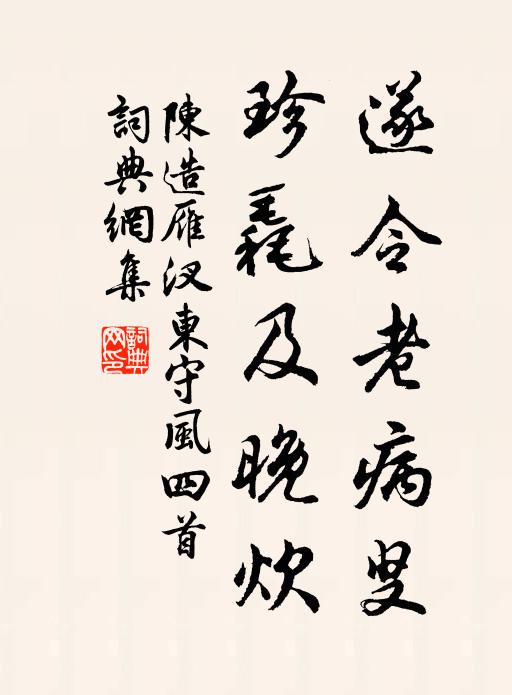 遂令老病叟
珍毳及晚炊
陳造雁汊東守風四首
詞典網集
詞典网印